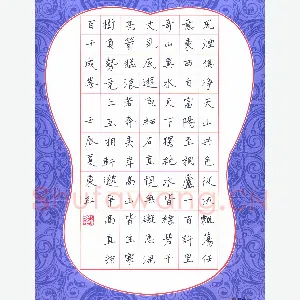 風煙俱淨天山共色從流飄蕩任
意東西自富陽至桐廬一百許里
奇山異水天下獨絕水皆縹碧千
丈見底遊魚細石直視無礙急湍
甚箭猛浪若奔夾岸高山皆生寒
樹負勢競上互相軒邈爭高直指
百千成峯
壬辰夏東紅